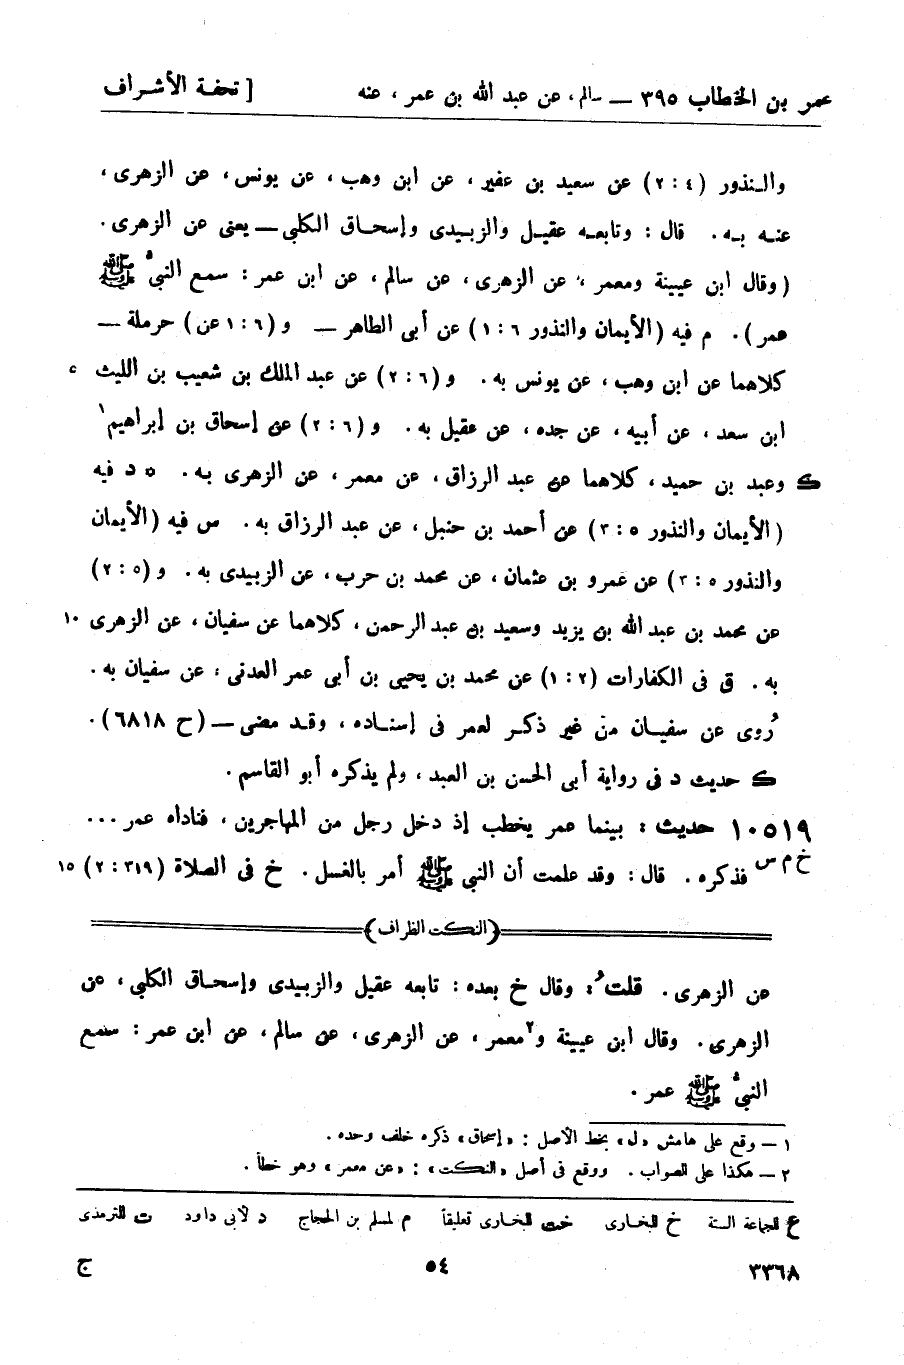 عمر بن الخطاب ٣٩٥ — سالم، عن عبد الله بن عمر، عنه [ تحفة الأشراف
والنذور (٤ : ٢) عن سعيد بن عفير، عن ابن وهب، عن يونس، عن الزهرى،
عنه به. قال : وتابعه عقيل والزبيدى وإسحاق الكلبى — يعنى عن الزهرى.
(وقال ابن عيينة ومعمر، عن الزهرى، عن سالم، عن ابن عمر : سمع النبىُّ ﷺ
عمر). م فيه (الأيمان والنذور ٦ : ١) عن أبى الطاهر — و (٦ : ١عن) حرملة —
كلاهما عن ابن وهب، عن يونس به. و (٦ : ٢) عن عبد الملك بن شعيب بن الليث ٥
ابن سعد، عن أبيه، عن جده، عن عقيل به. و (٦ : ٢) عن إسحاق بن إبراهيم١
ك وعبد بن حميد، كلاهما عن عبد الرزاق، عن معمر، عن الزهرى به. * د فيه
(الأيمان والنذور ٥ : ٣) عن أحمد بن حنبل، عن عبد الرزاق به. س فيه (الأيمان
والنذور ٥ : ٣) عن عمرو بن عثمان، عن محمد بن حرب، عن الزبيدى به. و (٥ : ٢)
عن محمد بن عبد الله بن يزيد وسعيد بن عبد الرحمن، كلاهما عن سفيان، عن الزهرى ١٠
به. ق فى الكفارات (٢ : ١) عن محمد بن يحيى بن أبى عمر العدنى، عن سفيان به.
رُوى عن سفيان من غير ذكر لعمر فى إسناده، وقد مضى — (ح ٦٨١٨).
ك حديث د فى رواية أبى الحسن بن العبد، ولم يذكره أبو القاسم.
١٠٥١٩ حديث : بينما عمر يخطب إذ دخل رجل من المهاجرين، فناداه عمر ...
خ م س فذكره. قال : وقد علمت أن النبى ﷺ أمر بالغسل. خ فى الصلاة (٣١٩ : ٢) ١٥
(النكت الظراف)
عن الزهرى. قلتُ : وقال خ بعده : تابعه عقيل والزبيدى وإسحاق الكلبى، عن
الزهرى. وقال ابن عيينة و٢معمر، عن الزهرى، عن سالم، عن ابن عمر : سمع
النبىُّ ﷺ عمر.
١ — وقع على هامش «ل» بخط الأصل : «إسحاق» ذكره خلف وحده.
٢ — هكذا على الصواب. ووقع فى أصل «النكت» : «عن معمر» وهو خطأ.
ع للجماعة الستة خ للبخارى خت للبخارى تعليقاً م لمسلم بن الحجاج د لأبى داود ت للترمذى
٣٣٦٨ ٥٤ ج